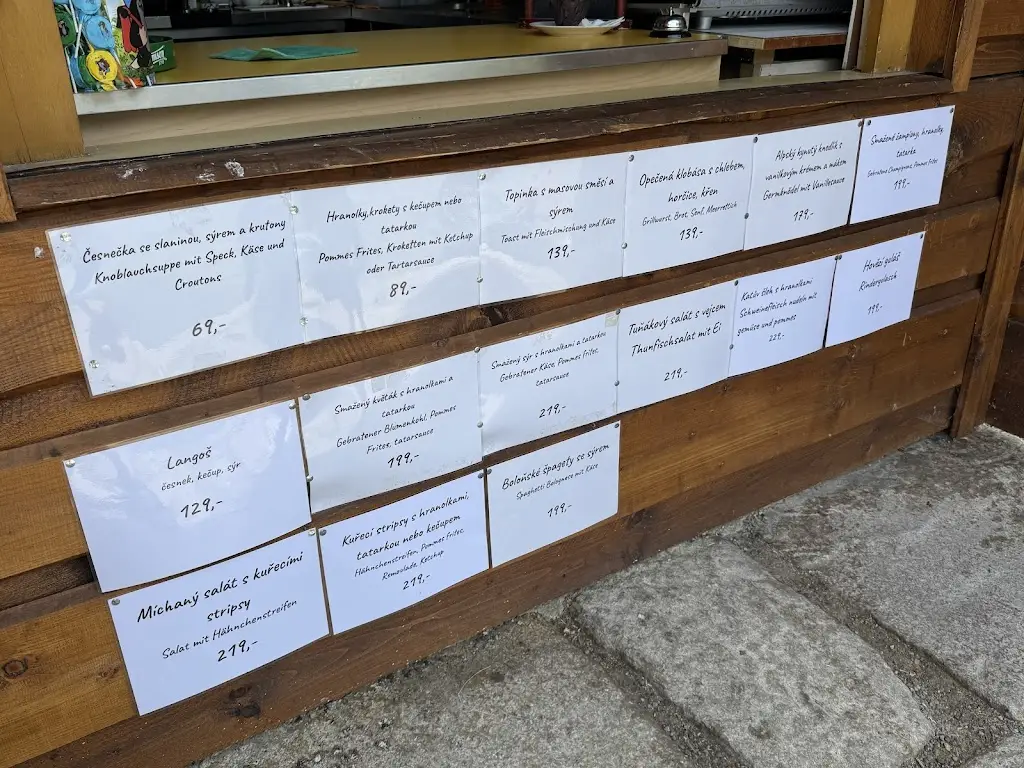 Česnečka se slaninou, sýrem a krutony
Knoblauchsuppe mit Speck, Käse und
Croutons
69,-
Hranolky,krokety s kečupem nebo
tatarkou
Pommes Frites, Kroketten mit Ketchup
oder Tartarsauce
89,-
Topinka s masovou směsí a
sýrem
Toast mit Fleischmischung und Käse
139,-
Opečená klobása s chlebem,
hořčice, křen
Grillwurst, Brot, Senf, Meerrettich
139,-
Alpský kynutý knedlík s
vanilkovým krémem a mákem
Germknödel mit Vanillesauce
179,-
Smažené žampiony, hranolky,
tatarka
Gebratene Champignons, Pommes Frites
199,-
Langoš
česnek, kečup, sýr
129,-
Smažený květák s hranolkami a
tatarkou
Gebratener Blumenkohl, Pommes
Frites, tatarsauce
199,-
Smažený sýr s hranolkami a tatarkou
Gebratener Käse, Pommes Frites,
tatarsauce
219,-
Tuňákový salát s vejcem
Thunfischsalat mit Ei
219,-
Katův šleh s hranolkami
Schweinefleisch nudeln mit
gemüse und pommes
229,-
Hovězí guláš
Rindergulasch
199,-
Míchaný salát s kuřecími
stripsy
Salat mit Hähnchenstreifen
219,-
Kuřecí stripsy s hranolkami,
tatarkou nebo kečupem
Hähnchenstreifen, Pommes Frites,
Remoulade, Ketchup
219,-
Boloňské špagety se sýrem
Spaghetti Bolognese mit Käse
199,-